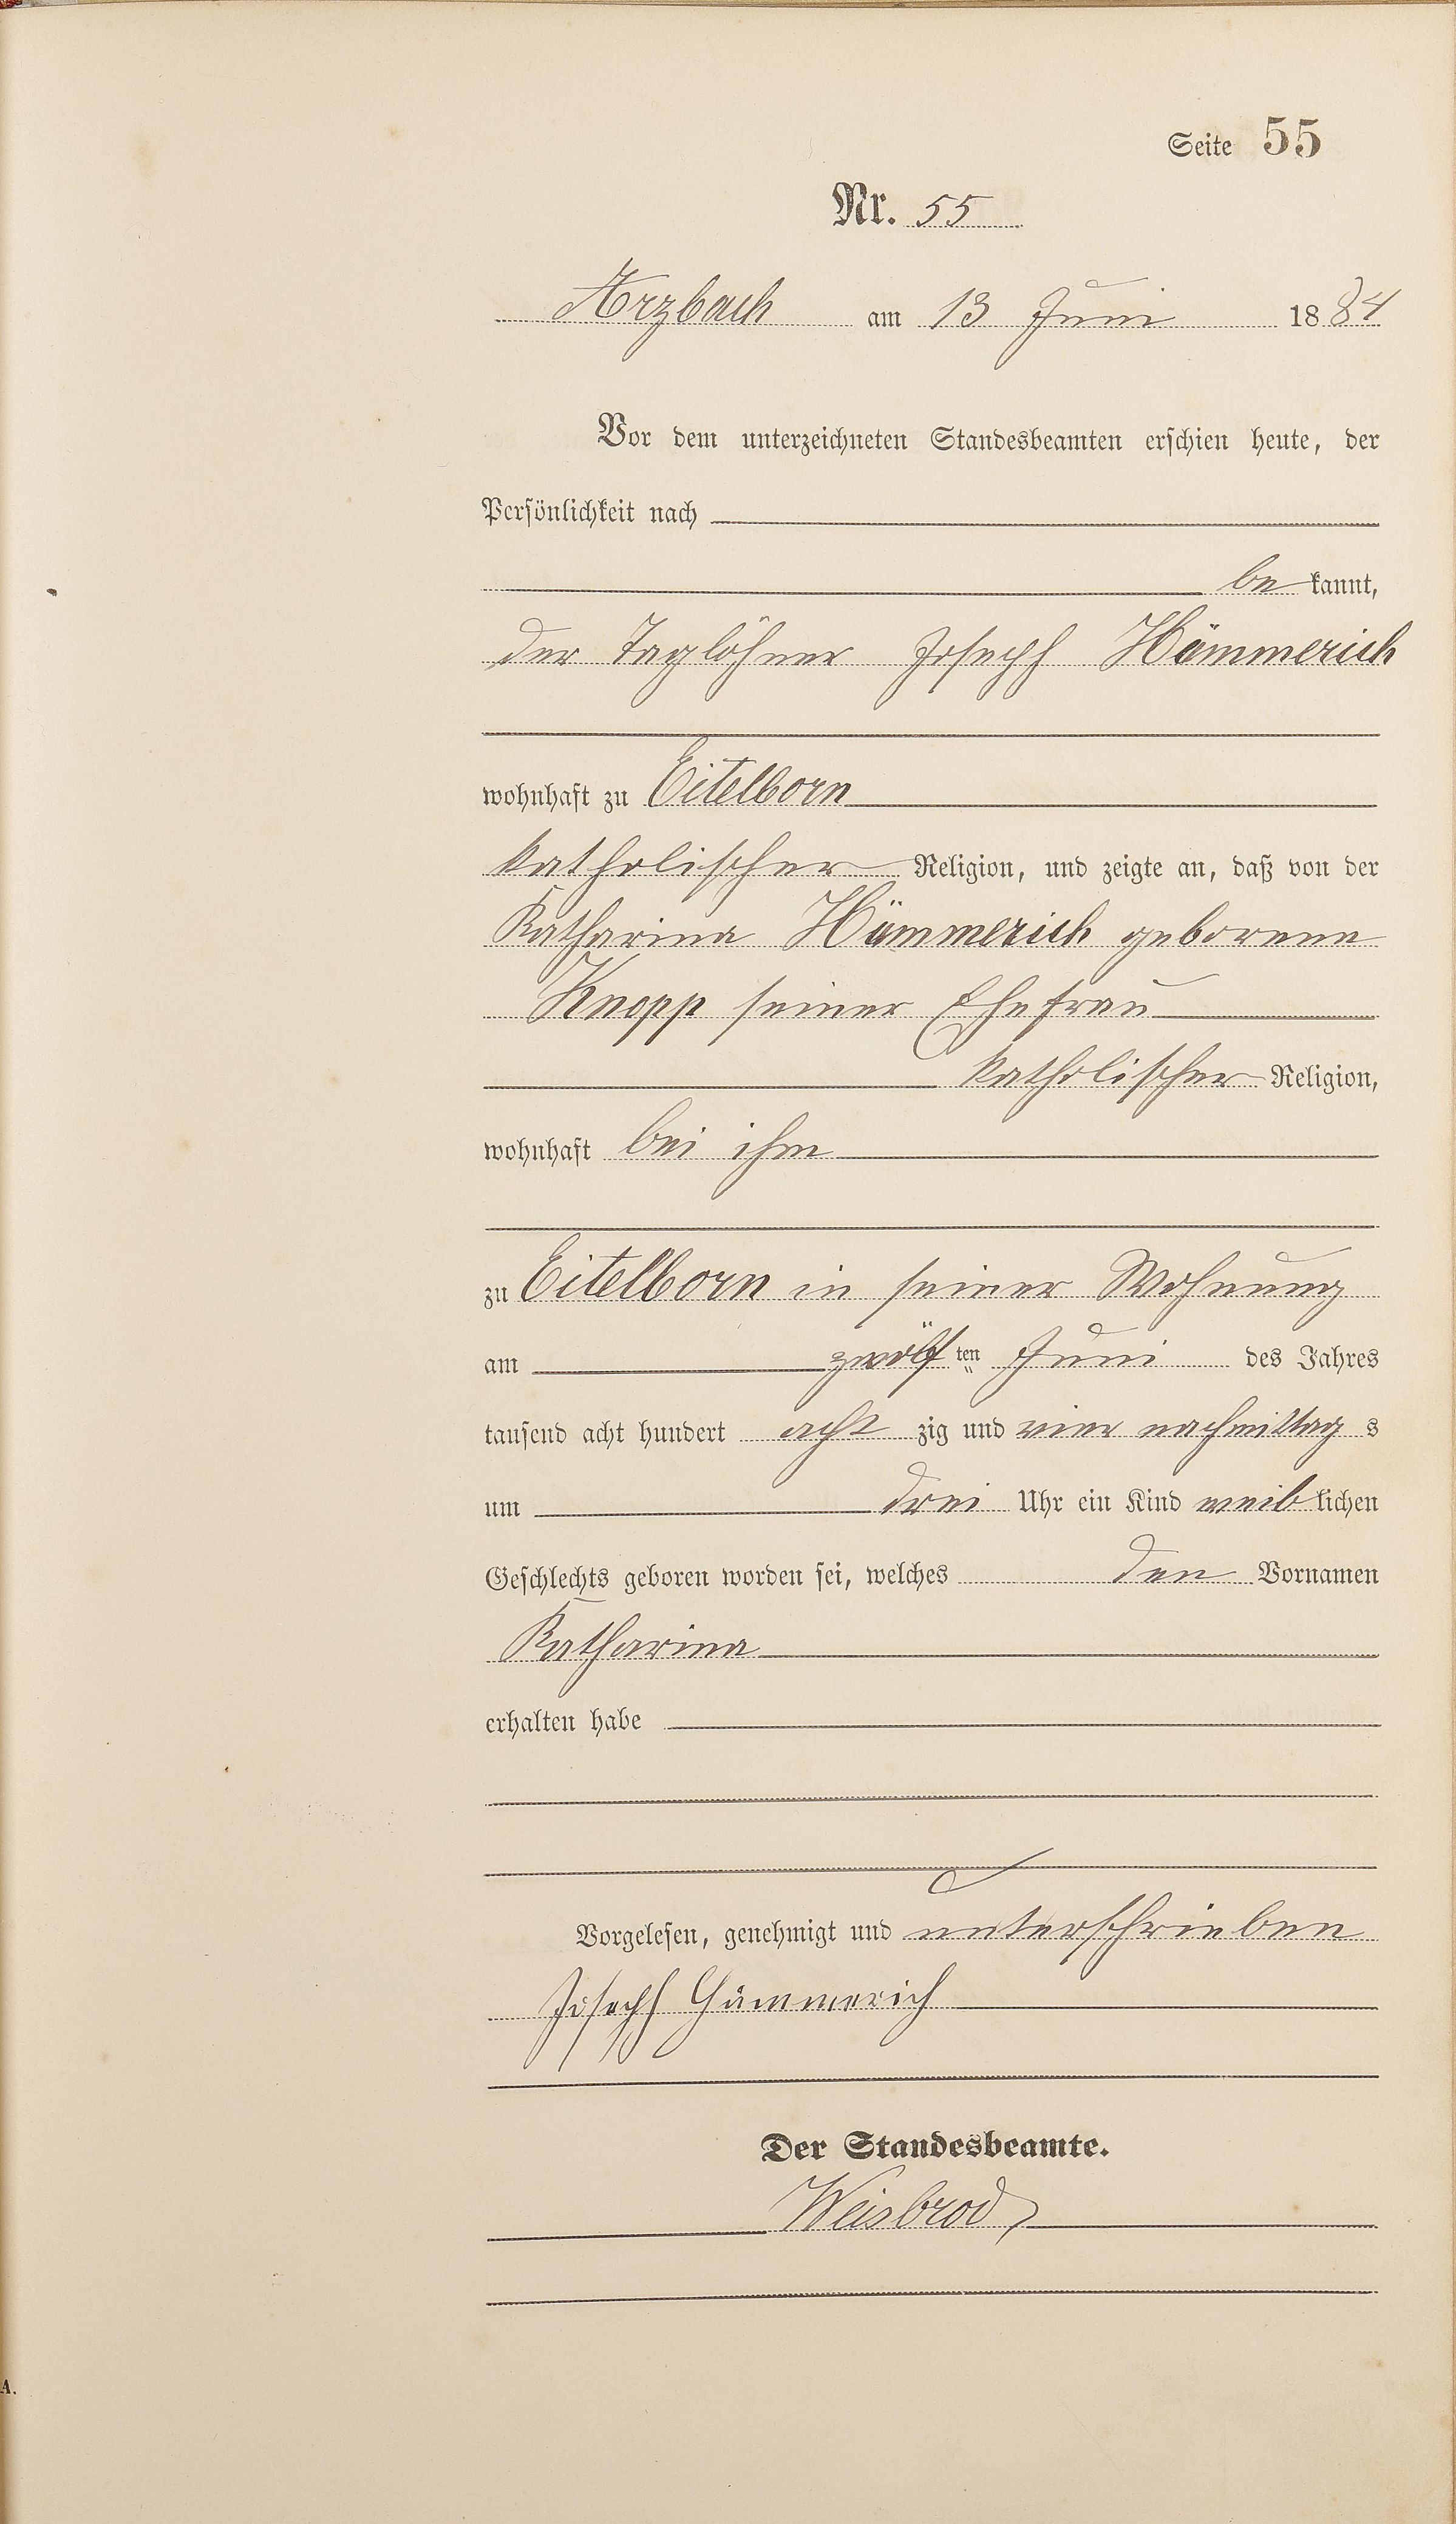 Seite 55
Nr. 55
Arzbach am 13 Juni 1884
Vor dem unterzeichneten Standesbeamten erschien heute, der
Persönlichkeit nach
be kannt,
der Taglöhner Joseph Hämmerich
wohnhaft zu Eitelborn
katholischer Religion, und zeigte an, daß von der
Katharina Hämmerich geborene
Knopp seiner Ehefrau
katholischer Religion,
wohnhaft bei ihm
zu Eitelborn in seiner Wohnung
am zwölf ten Juni des Jahres
tausend acht hundert acht zig und vier nachmittag s
um drei Uhr ein Kind weib lichen
Geschlechts geboren worden sei, welches den Vornamen
Katharina
erhalten habe
Vorgelesen, genehmigt und unterschrieben
Joseph Hämmerich
Der Standesbeamte.
Weisbrod
A.